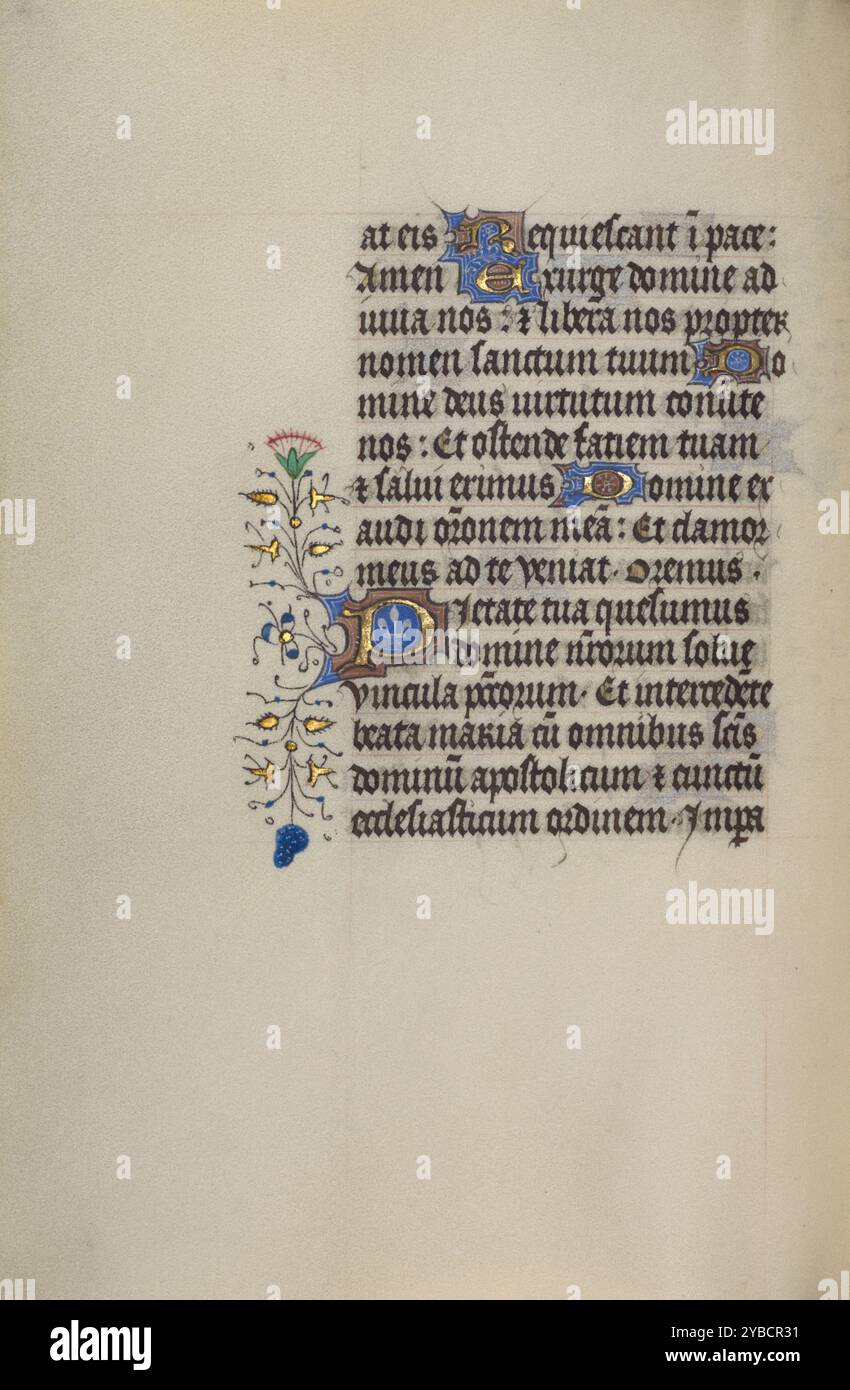 at eis Requiescant ī pace:
Amen Exurge domine ad
iuua nos : ⁊ libera nos propter
nomen sanctum tuum Do
mine deus uirtutum conuīte
nos : Et ostende faciem tuam
⁊ salui erimus Domine ex
audi or̄onem meā : Et clamor
meus ad te veniat · Oremus .
Pietate tua quesumus
domine nr̄orum solue
vincula pc̄corum · Et intercedēte
beata maria cū omnibus sc̄is
dominū apostolicum ⁊ cunctū
ecclesiasticum ordinem · Impa
alamy
Image ID: 2YBCR31
www.alamy.com